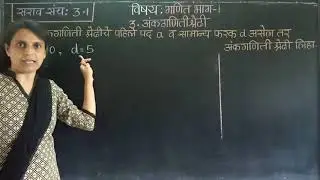 सराव संच: 3.1 विषय: गणित भाग-1
3. अंकगणिती श्रेढी
श्रेढीचे पहिले पद a व सामान्य फरक d असेल तर
0, d=5 अंकगणिती श्रेढी लिहा.